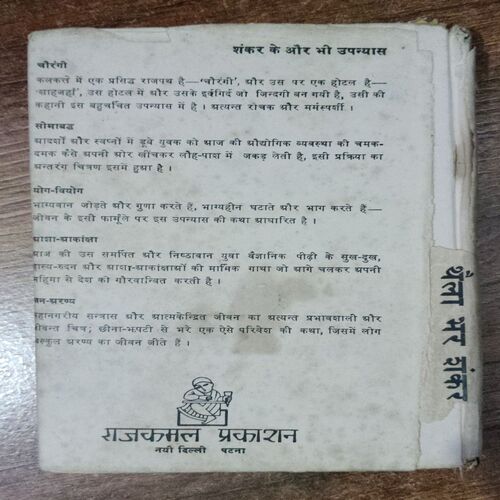 शंकर के और भी उपन्यास
चौरंगी
कलकत्ते में एक प्रसिद्ध राजपथ है—'चौरंगी', और उस पर एक होटल है—
'शाहजहाँ', उस होटल में और उसके इर्वगिर्द जो ज़िन्दगी बन गयी है, उसी की
कहानी इस बहुचर्चित उपन्यास में है । अत्यन्त रोचक और मर्मस्पर्शी ।
सीमाबद्ध
आदर्शों और स्वप्नों में डूबे युवक को आज की औद्योगिक व्यवस्था की चमक-
दमक कैसे अपनी ओर खींचकर लौह-पाश में जकड़ लेती है, इसी प्रक्रिया का
अन्तरंग चित्रण इसमें हुआ है ।
योग-वियोग
भाग्यवान जोड़ते और गुणा करते हैं, भाग्यहीन घटाते और भाग करते हैं—
जीवन के इसी फार्मूले पर इस उपन्यास की कथा आधारित है ।
आशा-आकांक्षा
आज की उस समर्पित और निष्ठावान युवा वैज्ञानिक पीढ़ी के सुख-दुख,
हास्य-रुदन और आशा-आकांक्षाओं की मार्मिक गाथा जो आगे चलकर अपनी
महिमा से देश को गौरवान्वित करती है ।
जन-अरण्य
महानगरीय सन्त्रास और आत्मकेन्द्रित जीवन का अत्यन्त प्रभावशाली और
जीवन्त चित्र; छीना-झपटी से भरे एक ऐसे परिवेश की कथा, जिसमें लोग
बिल्कुल अरण्य का जीवन जीते हैं ।
राजकमल प्रकाशन
नयी दिल्ली पटना
थैला भर शंकर